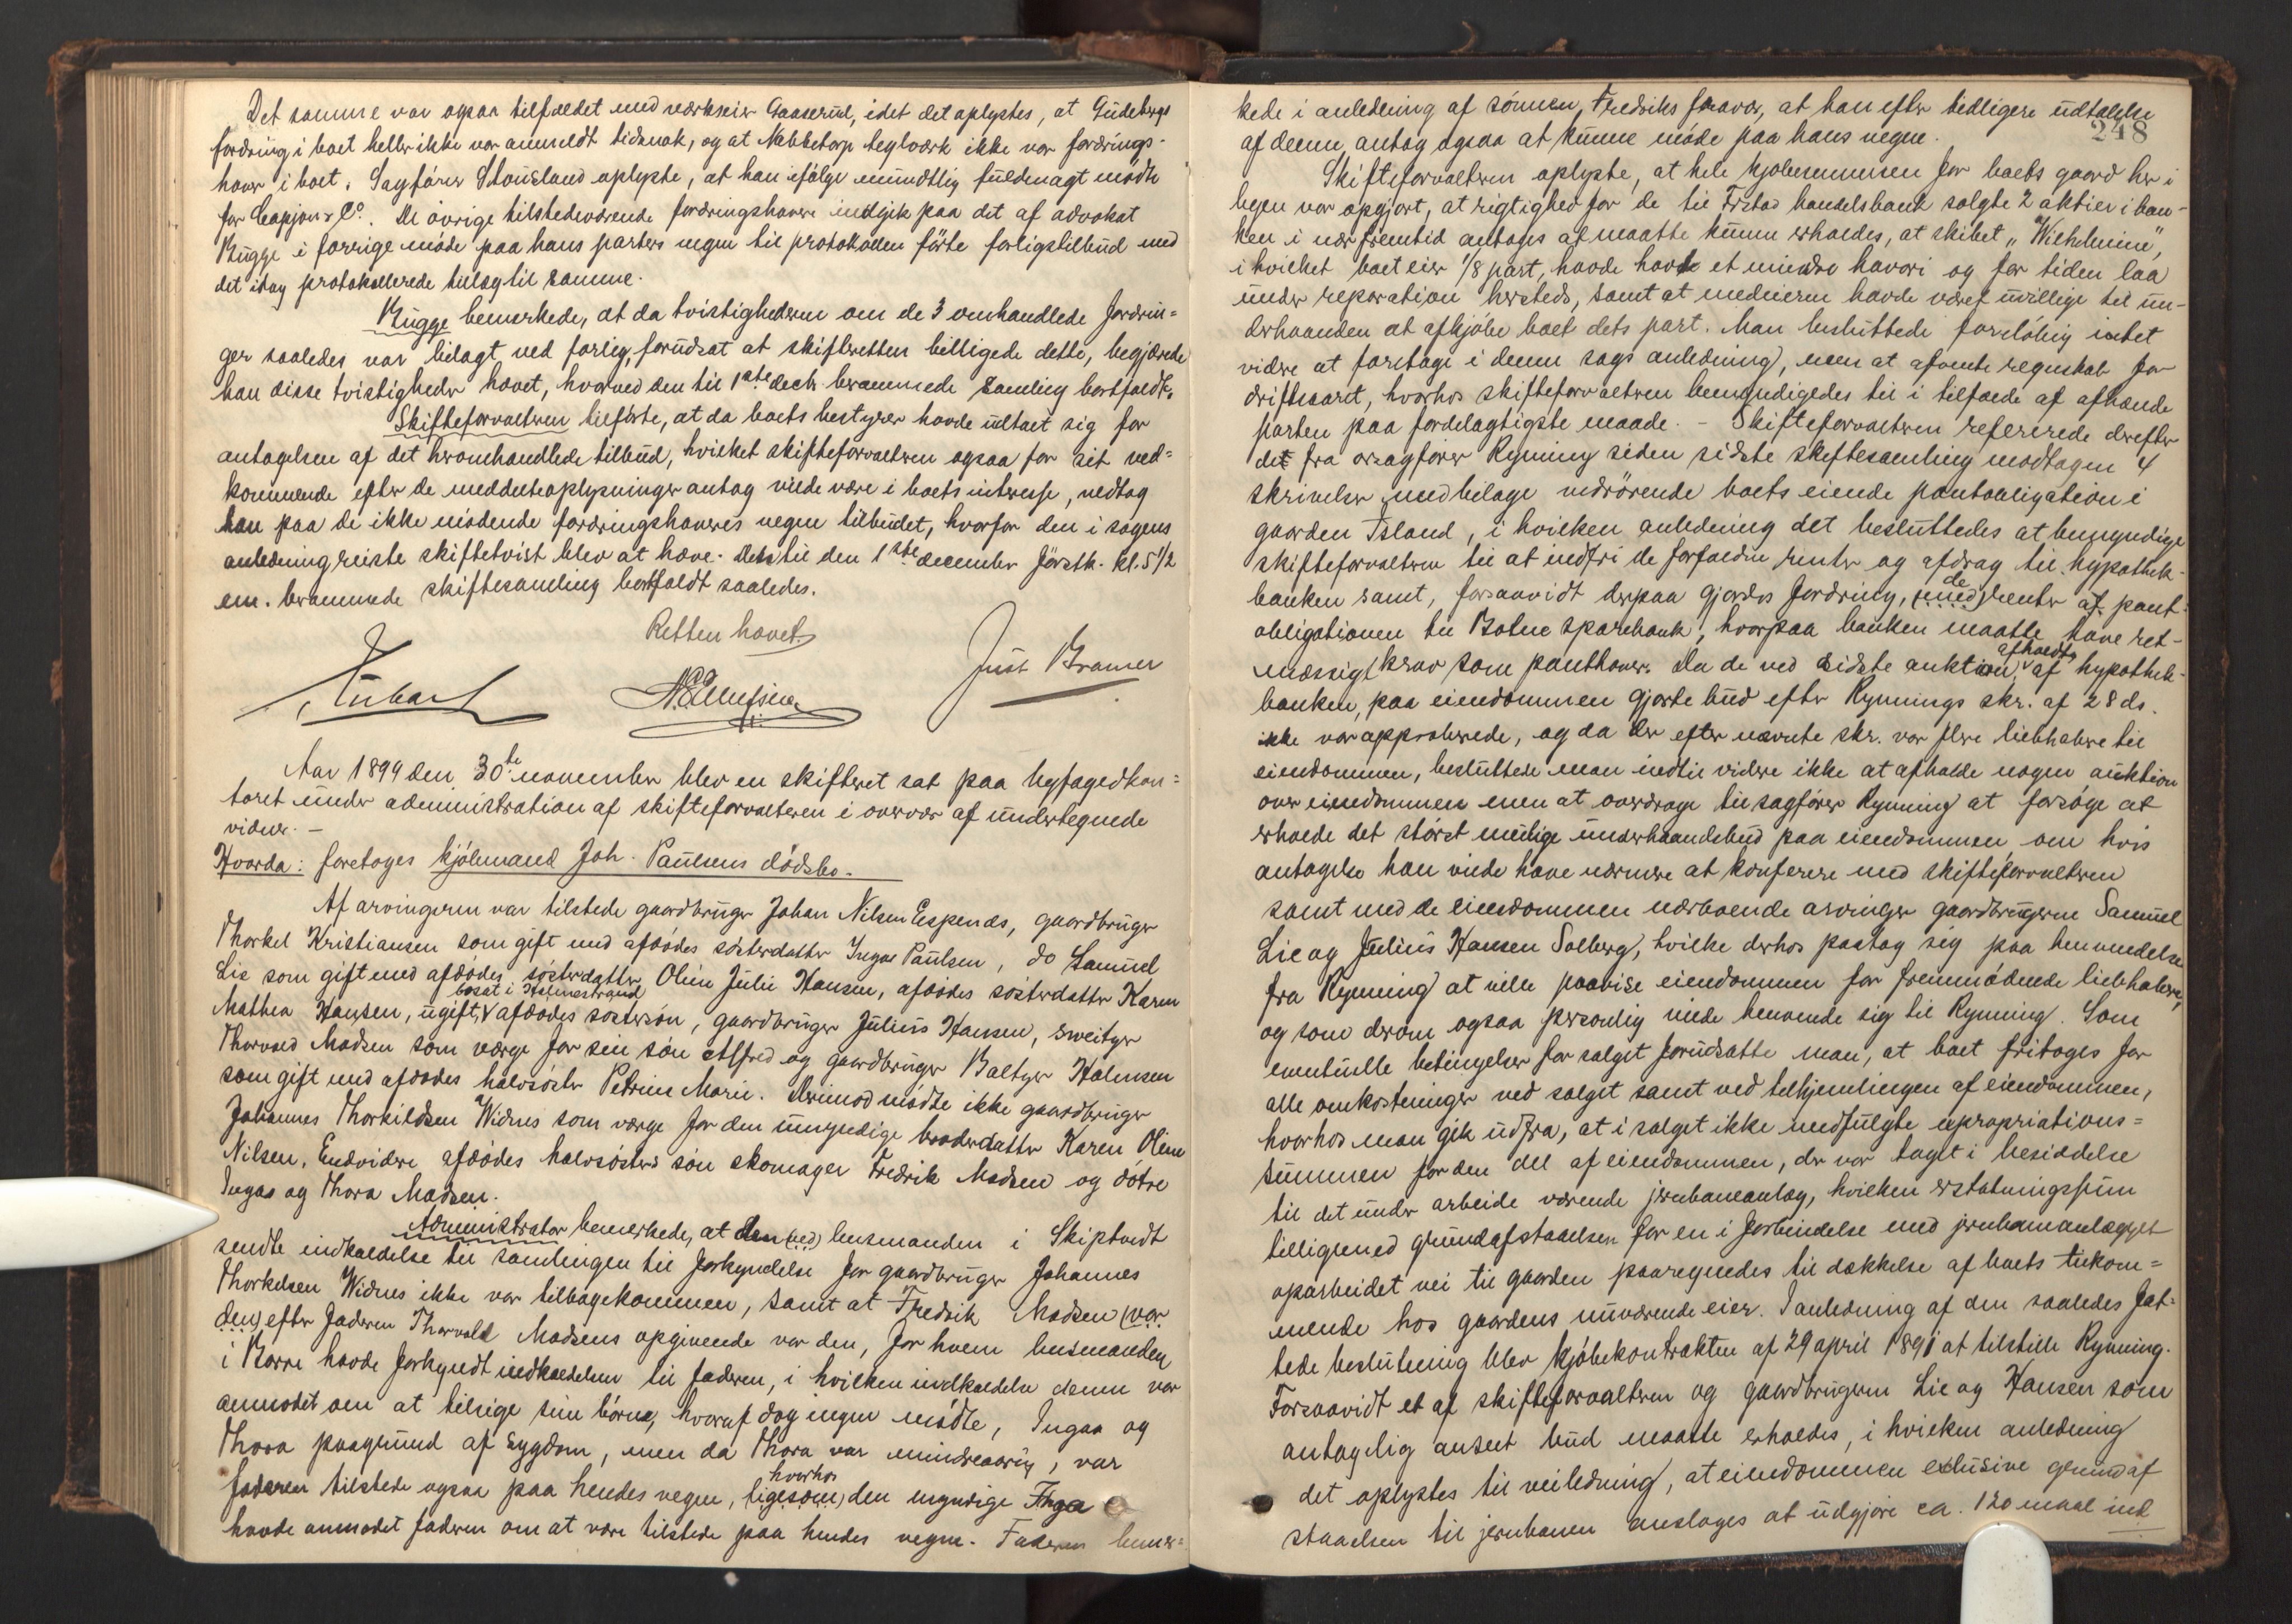 Det samme var ogsaa tilfældet med værkseier Gaaserud, idet det oplystes, at Gudebergs
fordring i boet heller ikke var anmeldt tidsnok, og at Nabbetorp teglværk ikke var fordrings-
haver i boet. Sagfører Stousland oplyste, at han ifølge mundtlig fuldmagt mødte
for Capjon & Co. De øvrige tilstedeværende fordringshavere indgik paa det af advokat
Bugge i forrige møde paa hans parters vegne til protokollen førte forligstilbud med
det idag protokollerede tillæg til samme.
Bugge bemærkede, at da tvistighederne om de 3 omhandlede fordrin=
ger saaledes var bilagt ved forlig, forudsat at skifteretten billigede dette, begjærede
han disse tvistigheder hævet, hvorved den til 1ste decbr. berammede samling bortfaldt.
Skifteforvalteren tilførte, at da boets bestyrer havde udtalt sig for
antagelsen af det heromhandlede tilbud, hvilket skifteforvalteren ogsaa for sit ved=
kommende efter de meddelte oplysninger antog vilde være i boets interesse, vedtog
han paa de ikke mødende fordringshaveres vegne tilbudet, hvorfor den i sagens
anledning reiste skiftetvist blev at hæve. Den til den 1ste december førstk. kl. 5 1/2
em. berammede skiftesamling bortfaldt saaledes.
Retten hævet.
Just Bramer
Aar 1899 den 30te november blev en skifteret sat paa byfogedkon=
toret under administration af skifteforvalteren i overvær af undertegnede
vidner. –
Hvorda: foretoges kjøbmand Joh. Paulsens dødsbo.
Af arvingerne var tilstede gaardbruger Johan Nilsen Espenæs, gaardbruger
Thorkel Kristiansen som gift med afdødes søsterdatter Ingas Paulsen, do Samuel
Lie som gift med afdødes søsterdatter Oline Julie Hansen, afdødes søsterdatter Karen
bosat i Holmestrand
Mathea Hansen, ugift, V afdødes søstersøn, gaardbruger Julius Hansen, sveitser
Thorvald Madsen som værge for sin søn Alfred og gaardbruger Baltzer Halmsen
som gift med afdødes halvsøster Petrine Marie. Derimod mødte ikke gaardbruger
Johannes Thorkildsen Widnes som værge for den umyndige broderdatter Karen Oline
Nilsen. Endvidere afdødes halvsøsters søn skomager Fredrik Madsen og døtre
Ingas og Thora Madsen.
Administrator bemærkede, at den (ved) lensmanden i Skiptvedt
sendte indkaldelse til samlingen til forkyndelse for gaardbruger Johannes
Thorkelsen Widnes ikke var tilbagekommen, samt at Fredrik Madsen (var
den) efter faderen Thorvald Madsens opgivende var den, for hvem lensmanden
i Borre havde forkyndt indkaldelsen til faderen, i hvilken indkaldelse denne var
anmodet om at tilsige sine børn, hvoraf dog ingen mødte, Ingaa og
Thora paagrund af sygdom, men da Thora var mindreaarig, var
hvorhos
faderen tilstede ogsaa paa hendes vegne, (ligesom) den myndige Inga
havde anmodet faderen om at være tilstede paa hendes vegne. Faderen bemær=
248
kede i anledning af sønnen Fredriks fravær, at han efter tidligere udtalelse
af denne antog ogsaa at kunne møde paa hans vegne.
Skifteforvalteren oplyste, at hele kjøbesummen for boets gaard her i
byen var opgjort, at rigtighed for de til Frstad handelsbank solgte 2 aktier i ban-
ken i nær fremtid antages at maatte kunne erholdes, at skibet „Wilhelmine",
i hvilket boet eier 1/8 part, havde havt et mindre havari og for tiden laa
under reparation hersteds, samt at medeierne havde været uvillige til un-
derhaanden at afkjøbe boet dets part. Man besluttede foreløbig intet
videre at foretage i denne sags anledning, men at afvente regnskab for
driftsaaret, hvorhos skifteforvalteren bemyndigedes til i tilfælde at afhænde
parten paa fordelagtigste maade. – Skifteforvalteren refererede derefter
det fra orsagfører Rynning siden sidste skiftesamling modtagne 4
skrivelser med bilage vedrørende boets eiende pantobligation i
gaarden Island, i hvilken anledning det besluttedes at bemyndige
skifteforvalteren til at indfri de forfaldne renter og afdrag til hypothek-
de
banken samt, forsaavidt derpaa gjordes fordring, (med) renter af pant-
obligationen til Botne sparebank, hvorpaa banken maatte have ret-
afholdt
mæssigt krav som panthaver. Da de ved sidste auktion, af hypothek-
banken, paa eiendommen gjorte bud efter Rynnings skr. af 28 ds.
ikke var approberede, og da der efter nævnte skr. var flere liebhabere til
eiendommen, besluttede man indtil videre ikke at afholde nogen auktion
over eiendommen men at overdrage til sagfører Rynning at forsøge at
erholde det størst mulige underhaandsbud paa eiendommen om hvis
antagelse han vilde have nærmere at konferere med skifteforvalteren
samt med de eiendommen nærboende arvinger gaardbrugerne Samuel
Lie og Julius Hansen Solberg, hvilke derhos paatog sig paa henvendelse
fra Rynning at ville paavise eiendommen for fremmødende liebhabere,
og som derom ogsaa personlig vilde henvende sig til Rynning. Som
eventuelle betingelser for salget forudsatte man, at boet fritages for
alle omkostninger ved salget samt ved tilhjemlingen af eiendommen,
hvorhos man gik udfra, at i salget ikke medfulgte expropriations=
summen for den del af eiendommen, der var taget i besiddelse
til det under arbeide værende jernbaneanlæg, hvilken erstatningssum
tilligemed grundafstaaelsen for en i forbindelse med jernbaneanlægget
oparbeidet vei til gaarden paaregnedes til dækkelse af boets tilkom=
mende hos gaardens nuværende eier. I anledning af den saaledes fat=
tede beslutning blev kjøbekontrakten af 29 april 1891 at tilstille Rynning.
Forsaavidt et af skifteforvalteren og gaardbrugerne Lie og Hansen som
antagelig anseet bud maatte erholdes, i hvilken anledning
det oplystes til veiledning, at eiendommen exlusive grundaf
staaelsen til jernbanen anslages at udgjøre ca. 120 maal ind